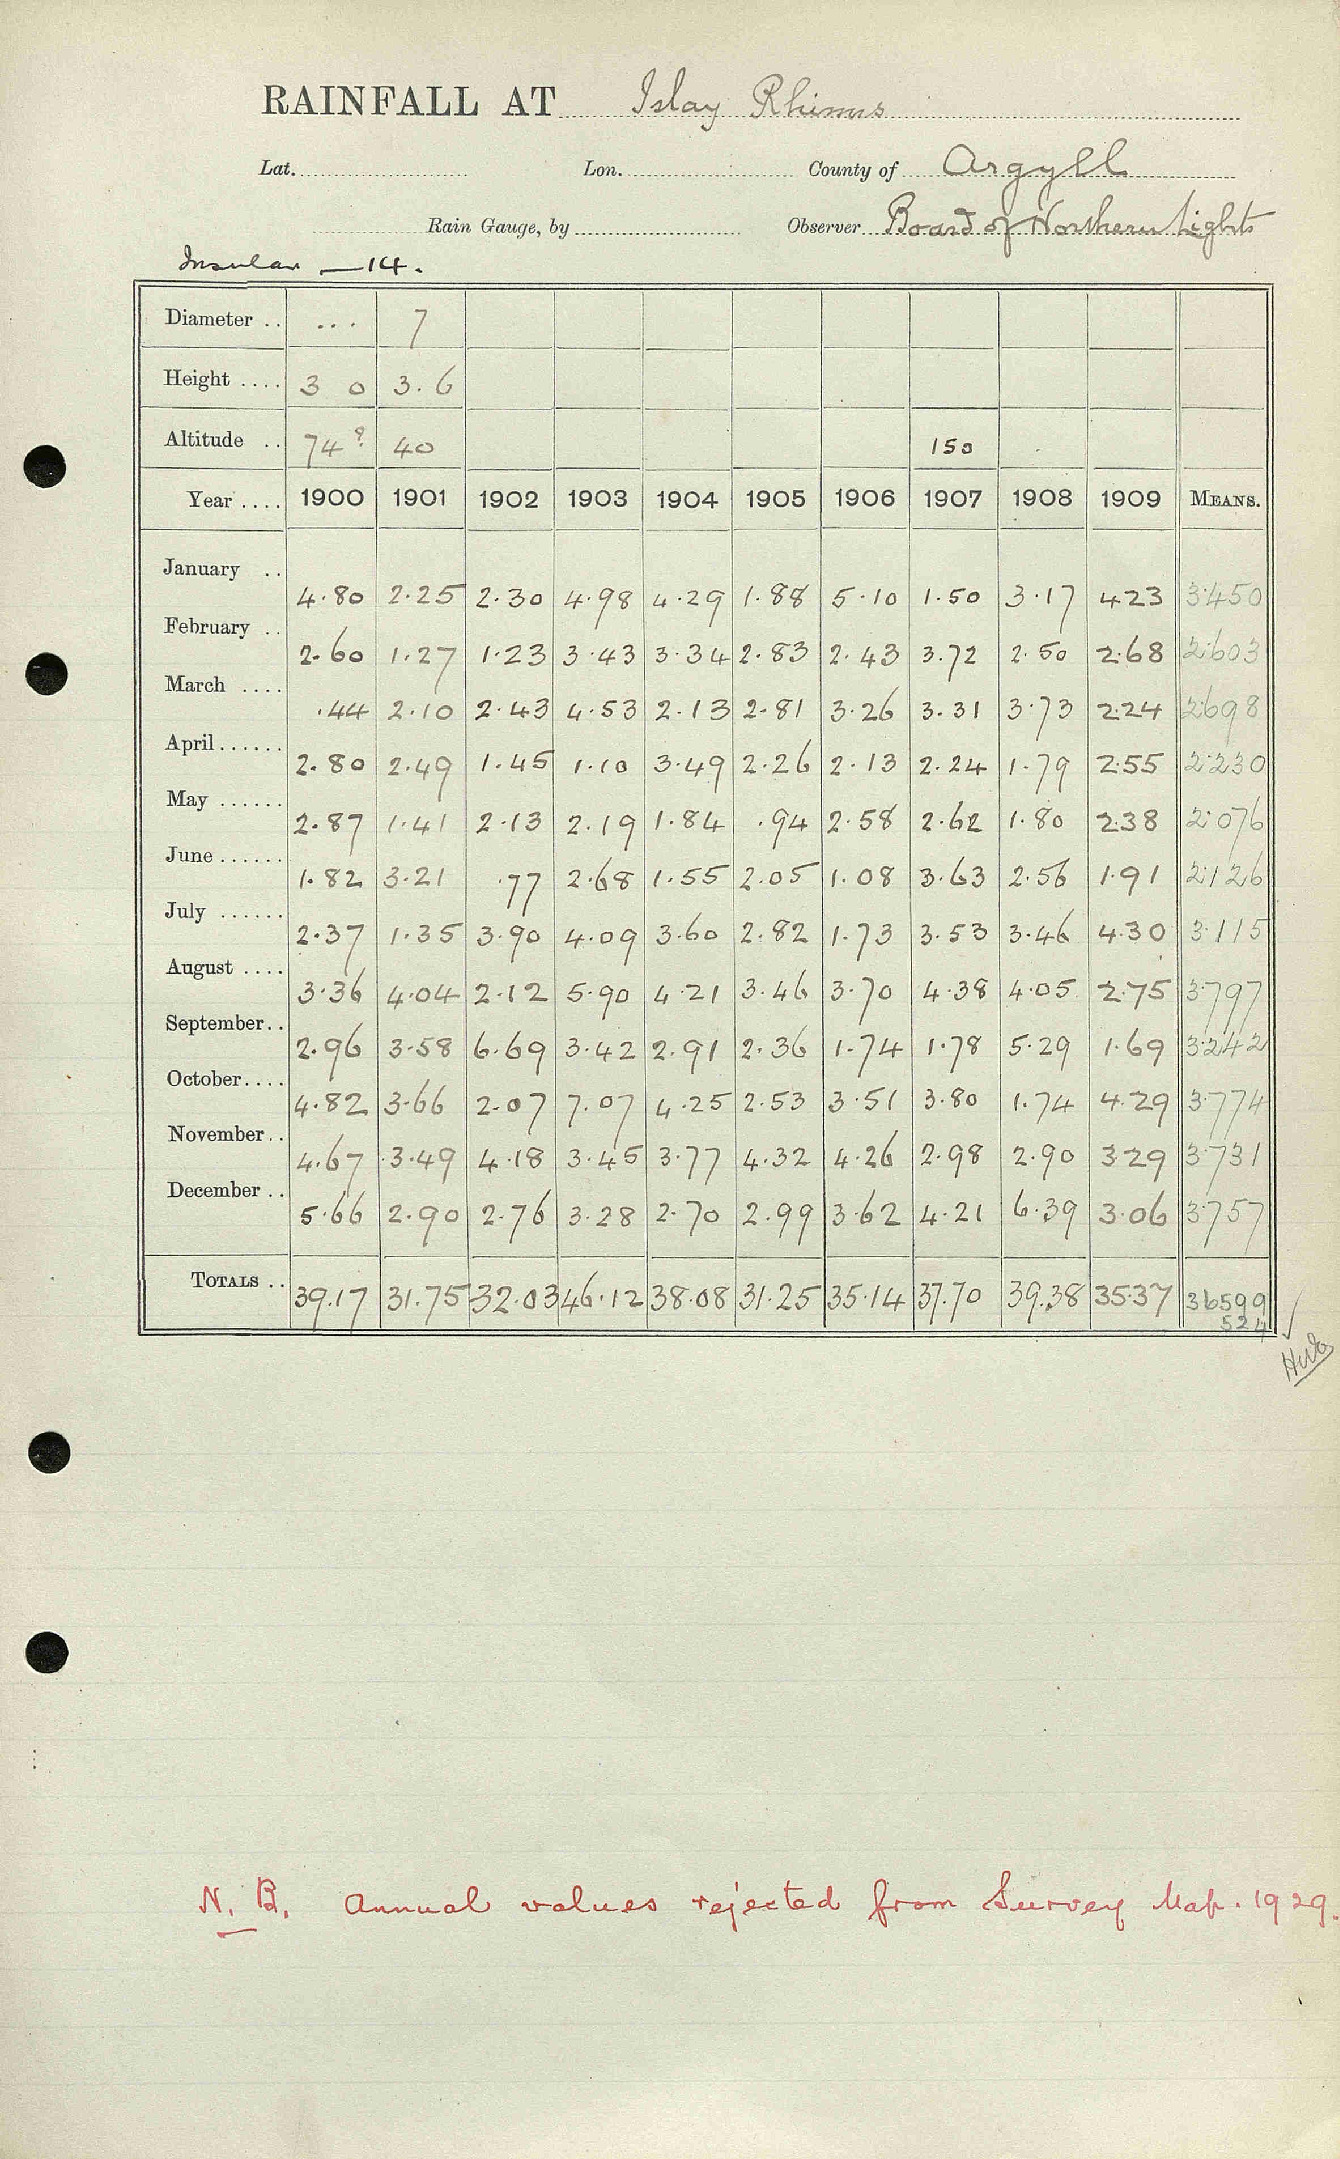 RAINFALL AT Islay Rhinns
Lat. Lon. County of Argyll
Rain Gauge, by Observer Board of Northern Lights
Insular — 14.
Diameter .. ... 7
Height .... 3 0 3.6
Altitude .. 74? 40 150
Year .... 1900 1901 1902 1903 1904 1905 1906 1907 1908 1909 MEANS.
January .. 4.80 2.25 2.30 4.98 4.29 1.88 5.10 1.50 3.17 4.23 3.450
February .. 2.60 1.27 1.23 3.43 3.34 2.83 2.43 3.72 2.50 2.68 2.603
March .... .44 2.10 2.43 4.53 2.13 2.81 3.26 3.31 3.73 2.24 2.698
April...... 2.80 2.49 1.45 1.10 3.49 2.26 2.13 2.24 1.79 2.55 2.230
May ...... 2.87 1.41 2.13 2.19 1.84 .94 2.58 2.62 1.80 2.38 2.076
June...... 1.82 3.21 .77 2.68 1.55 2.05 1.08 3.63 2.56 1.91 2.126
July ...... 2.37 1.35 3.90 4.09 3.60 2.82 1.73 3.53 3.46 4.30 3.115
August .... 3.36 4.04 2.12 5.90 4.21 3.46 3.70 4.38 4.05 2.75 3.797
September.. 2.96 3.58 6.69 3.42 2.91 2.36 1.74 1.78 5.29 1.69 3.242
October.... 4.82 3.66 2.07 7.07 4.25 2.53 3.51 3.80 1.74 4.29 3.774
November.. 4.67 3.49 4.18 3.45 3.77 4.32 4.26 2.98 2.90 3.29 3.731
December .. 5.66 2.90 2.76 3.28 2.70 2.99 3.62 4.21 6.39 3.06 3.757
TOTALS .. 39.17 31.75 32.03 46.12 38.08 31.25 35.14 37.70 39.38 35.37 36599
524
N. B. Annual values rejected from Survey Map. 1929.